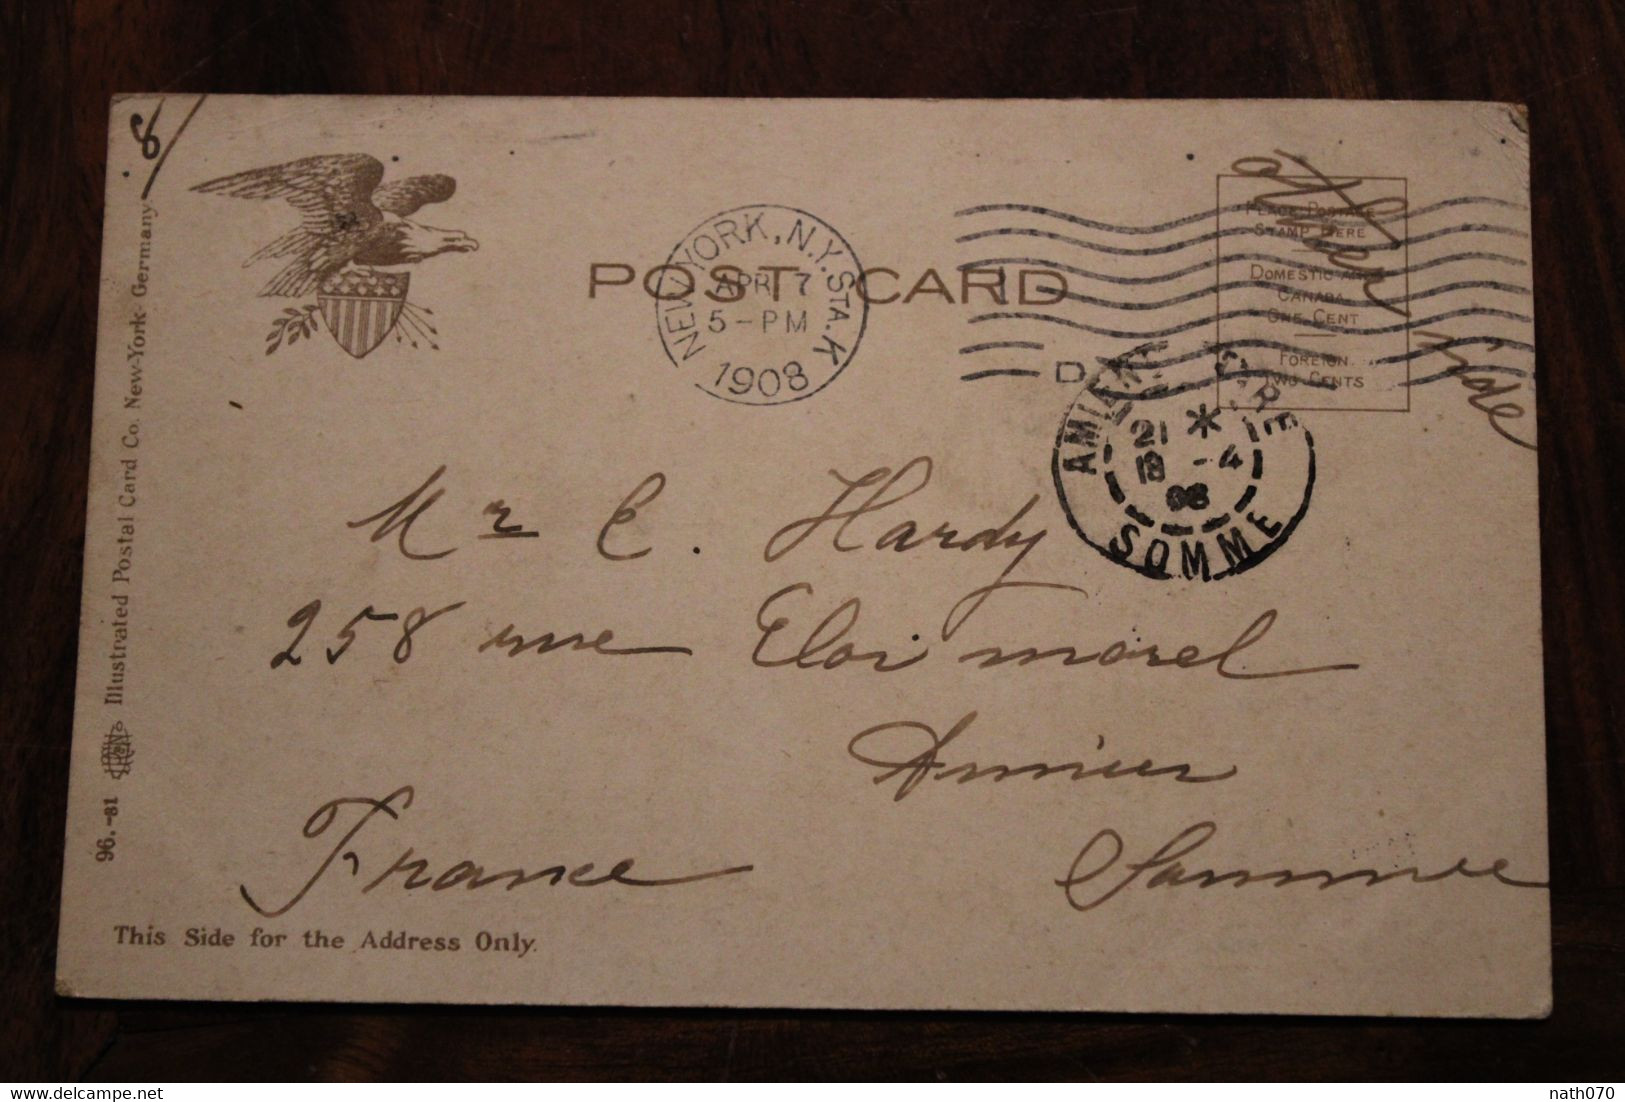 8/
POST CARD
NEW YORK, N.Y. STA. K
APR 7
5-PM
1908
D
PLACE POSTAGE
STAMP HERE
DOMESTIC AND
CANADA
ONE CENT
FOREIGN
TWO CENTS
other side
AMIENS GARE
21 *
18 -4
08
SOMME
Mr E. Hardy
258 rue Eloi morel
Amiens
France Somme
This Side for the Address Only.
96.-31 Illustrated Postal Card Co. New-York- Germany
nath070